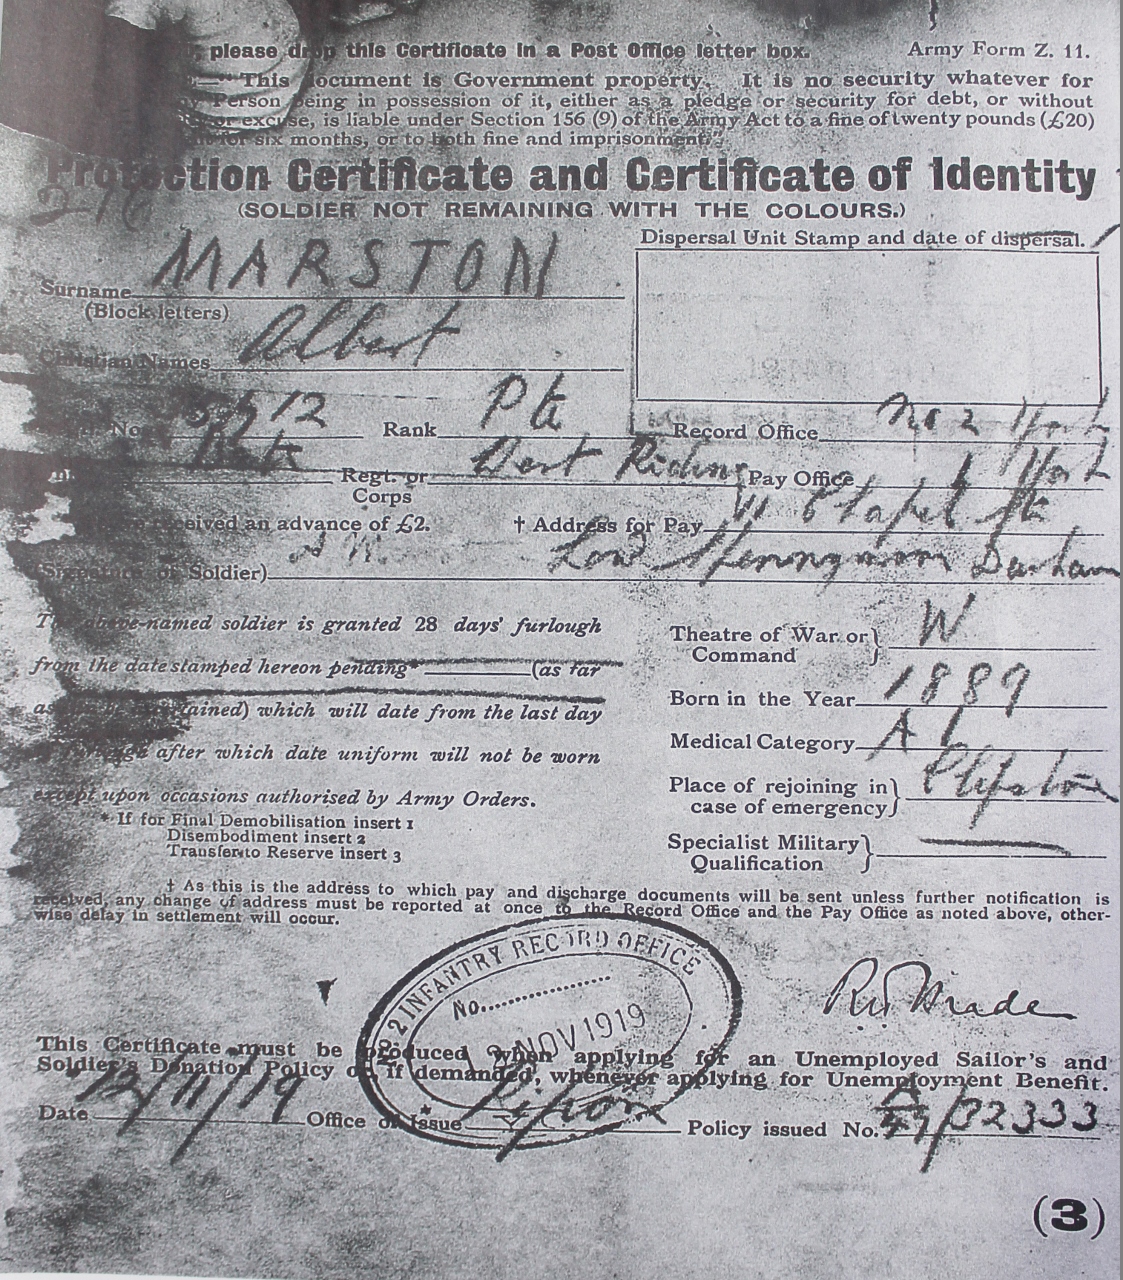 please drop this Certificate in a Post Office letter box. Army Form Z. 11.
This document is Government property. It is no security whatever for
Person being in possession of it, either as a pledge or security for debt, or without
or excuse, is liable under Section 156 (9) of the Army Act to a fine of twenty pounds (£20)
for six months, or to both fine and imprisonment."
Protection Certificate and Certificate of Identity
(SOLDIER NOT REMAINING WITH THE COLOURS.)
Dispersal Unit Stamp and date of dispersal.
Surname MARSTON
(Block letters)
Christian Names Albert
No. Rank Pte Record Office No 2 York
Regt. or Corps West Riding Pay Office York
received an advance of £2. † Address for Pay Chapel
Low Durham
(Signature of Soldier)
The above-named soldier is granted 28 days' furlough
from the date stamped hereon pending* (as far
as ained) which will date from the last day
after which date uniform will not be worn
except upon occasions authorised by Army Orders.
* If for Final Demobilisation insert 1
Disembodiment insert 2
Transfer to Reserve insert 3
Theatre of War or Command W
Born in the Year 1889
Medical Category A 1
Place of rejoining in case of emergency Clipstone
Specialist Military Qualification
† As this is the address to which pay and discharge documents will be sent unless further notification is
received, any change of address must be reported at once to the Record Office and the Pay Office as noted above, other-
wise delay in settlement will occur.
2 INFANTRY RECORD OFFICE
No.
NOV 1919
This Certificate must be produced when applying for an Unemployed Sailor's and
Soldier's Donation Policy or if demanded, whenever applying for Unemployment Benefit.
Date 12/11/19 Office of Issue Ripon Policy issued No. /32333
(3)